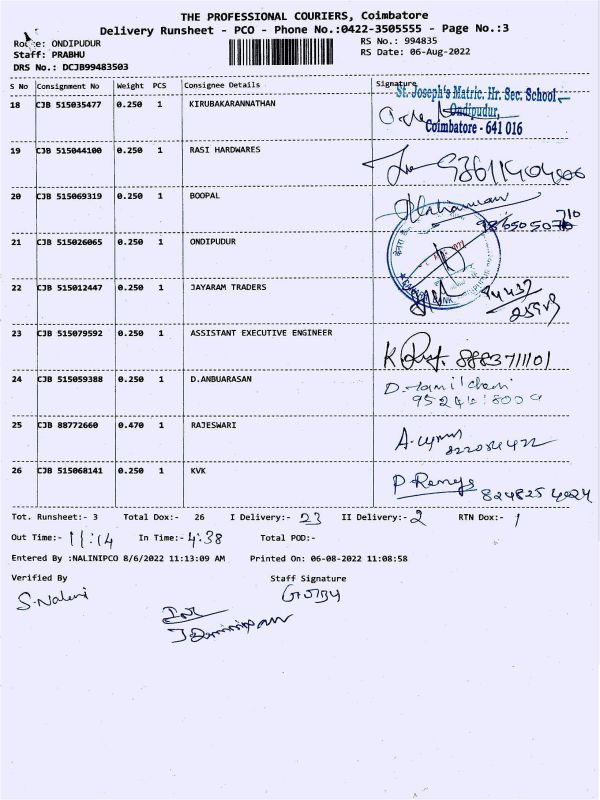 THE PROFESSIONAL COURIERS, Coimbatore
Delivery Runsheet - PCO - Phone No.:0422-3505555 - Page No.:3
Route: ONDIPUDUR
RS No.: 994835
Staff: PRABHU
RS Date: 06-Aug-2022
DRS No.: DCJB99483503
S No Consignment No Weight PCS Consignee Details Signature
St. Joseph's Matric. Hr. Sec. School
Ondipudur,
Coimbatore - 641 016
18 CJB 515035477 0.250 1 KIRUBAKARANNATHAN
19 CJB 515044100 0.250 1 RASI HARDWARES
20 CJB 515069319 0.250 1 BOOPAL
21 CJB 515026065 0.250 1 ONDIPUDUR
22 CJB 515012447 0.250 1 JAYARAM TRADERS
23 CJB 515079592 0.250 1 ASSISTANT EXECUTIVE ENGINEER
8883711101
24 CJB 515059388 0.250 1 D.ANBUARASAN
25 CJB 88772660 0.470 1 RAJESWARI
26 CJB 515068141 0.250 1 KVK
Tot. Runsheet:- 3 Total Dox:- 26 I Delivery:- 23 II Delivery:- 2 RTN Dox:- 1
Out Time:- 11:14 In Time:- 4:38 Total POD:-
Entered By :NALINIPCO 8/6/2022 11:13:09 AM Printed On: 06-08-2022 11:08:58
Verified By Staff Signature
S.Nalini